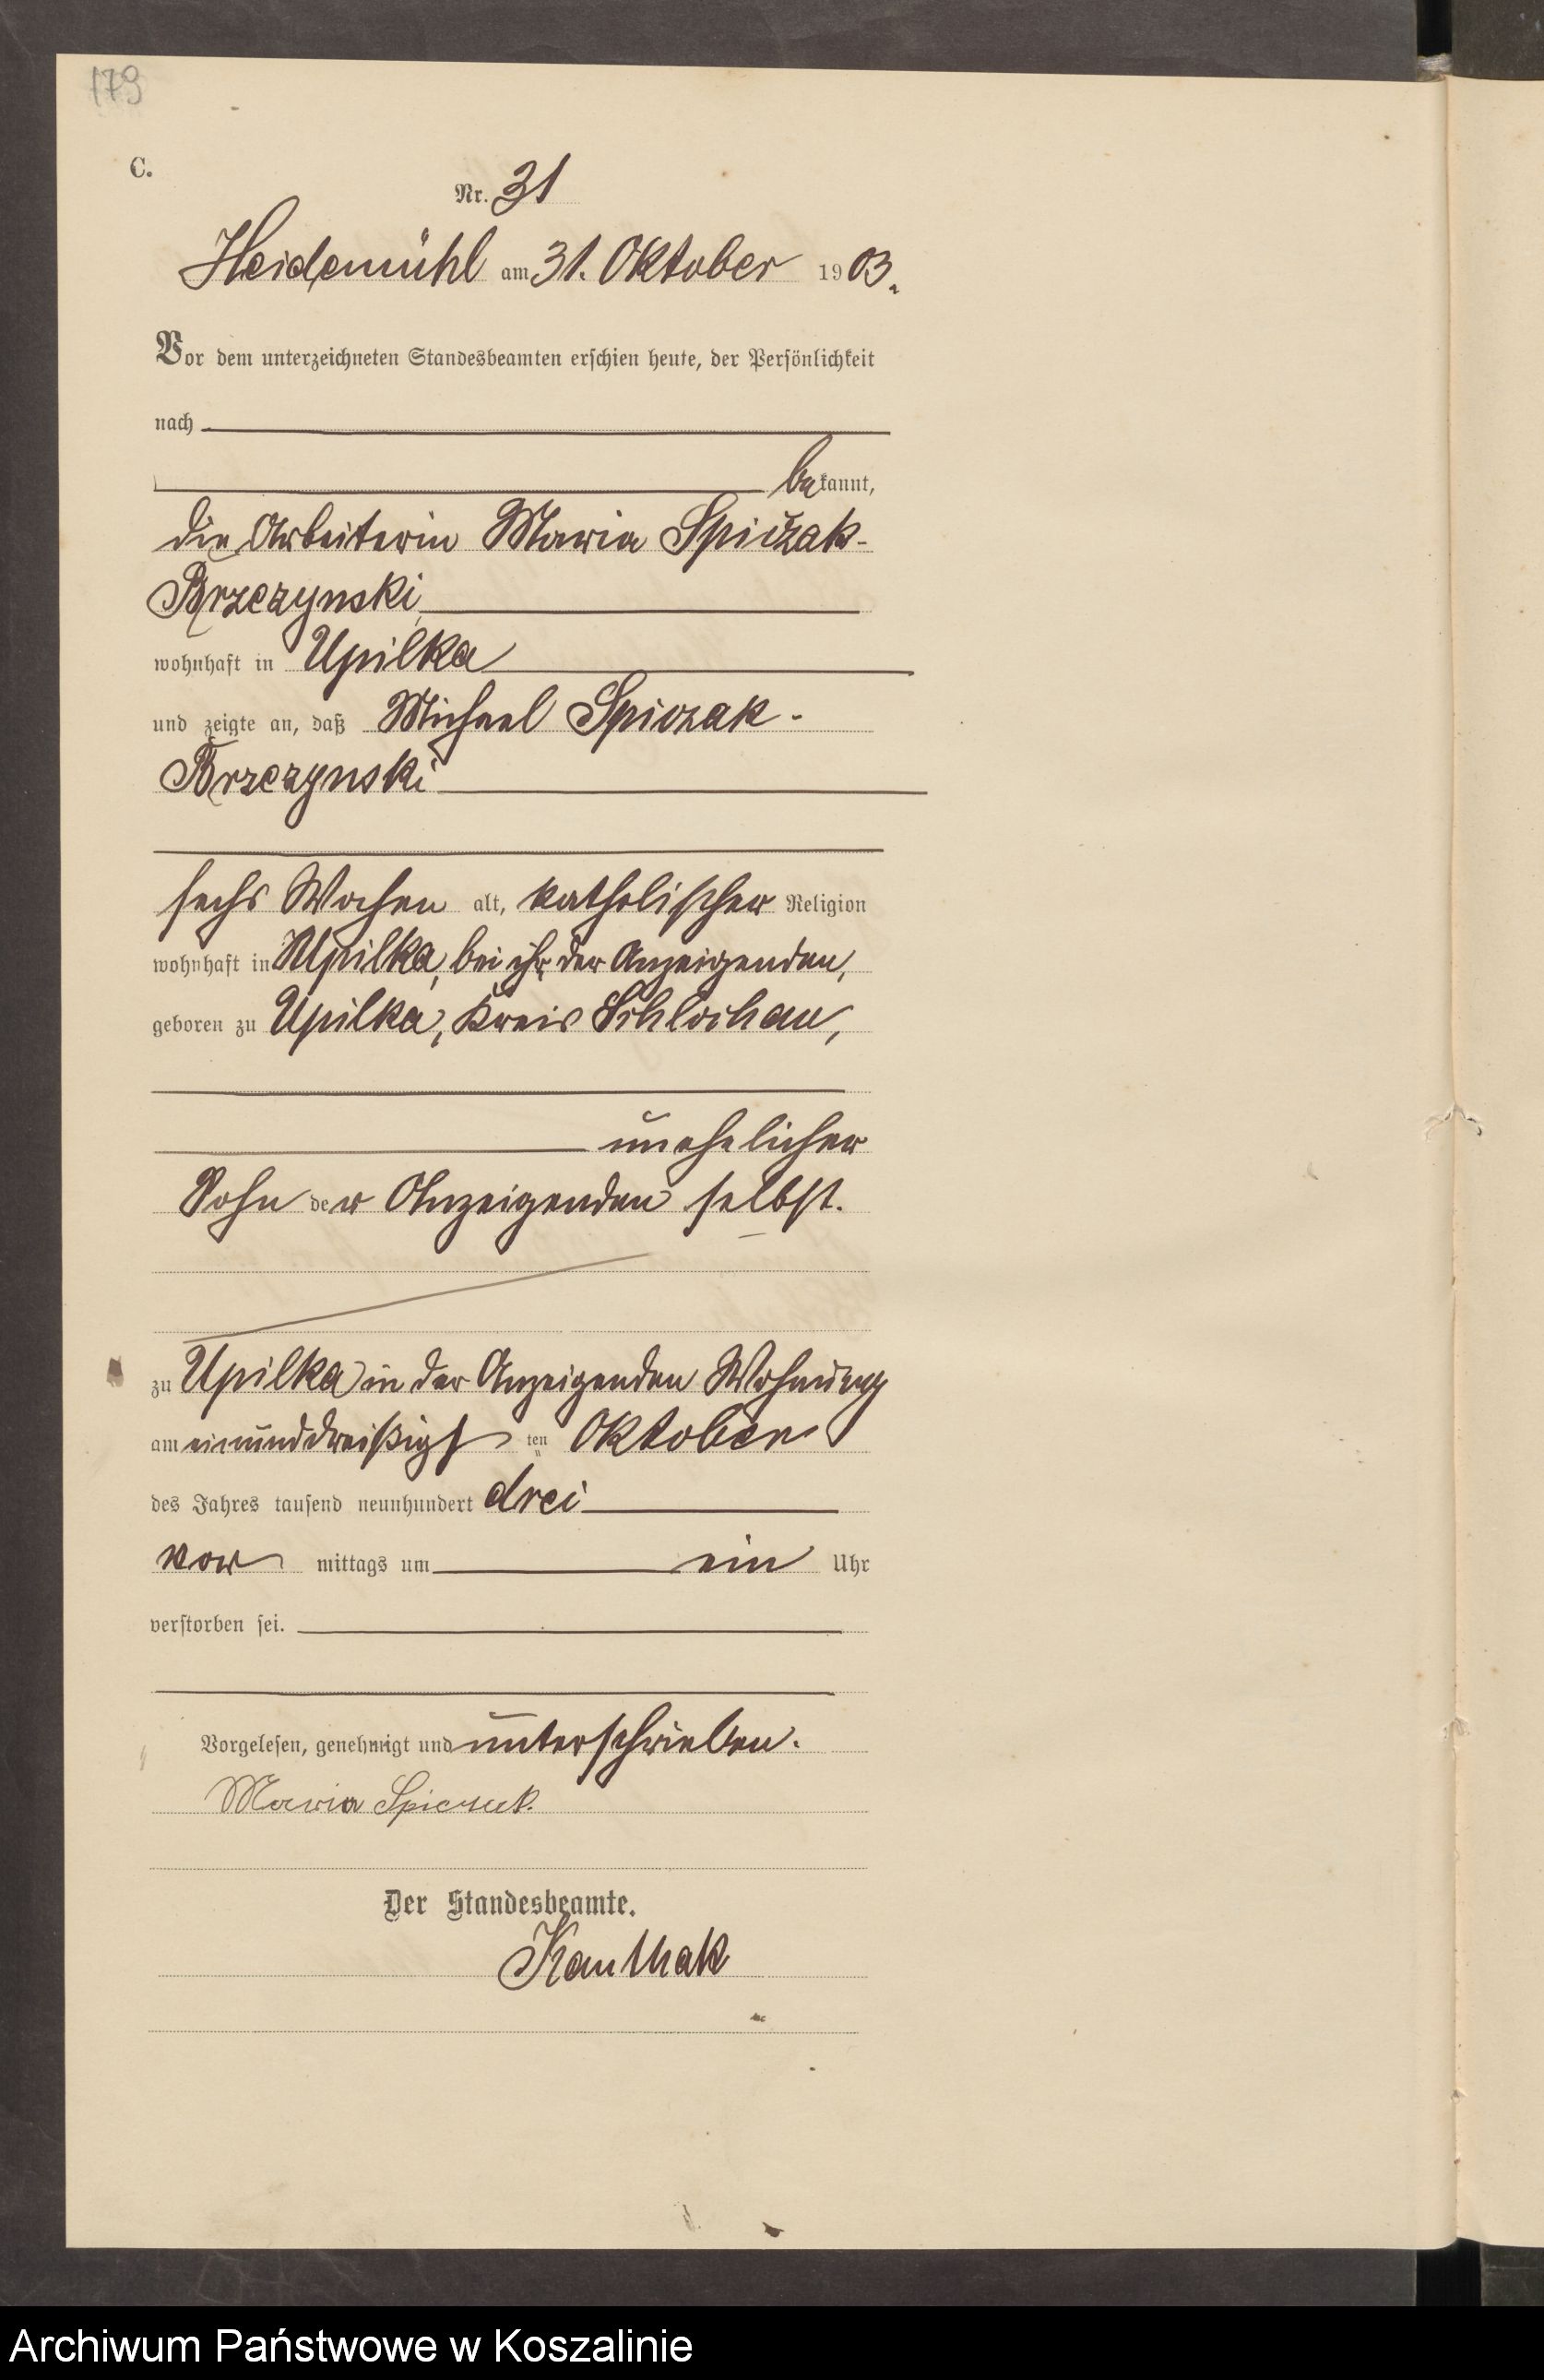 179
C.
Nr. 31
Heidemühl am 31. Oktober 1903.
Vor dem unterzeichneten Standesbeamten erschien heute, der Persönlichkeit
nach
bekannt,
die Arbeiterin Maria Spiczak-
Brzezynski,
wohnhaft in Upilka
und zeigte an, daß Michael Spiczak-
Brzezynski
sechs Wochen alt, katholischer Religion
wohnhaft in Upilka, bei ihr der Anzeigenden,
geboren zu Upilka, Kreis Schlochau,
unehelicher
Sohn der Anzeigenden selbst.
zu Upilka in der Anzeigenden Wohnung
am einunddreißigsten Oktober
des Jahres tausend neunhundert drei
vor mittags um ein Uhr
verstorben sei.
Vorgelesen, genehmigt und unterschrieben.
Maria Spiczak.
Der Standesbeamte.
Kauthak
Archiwum Państwowe w Koszalinie